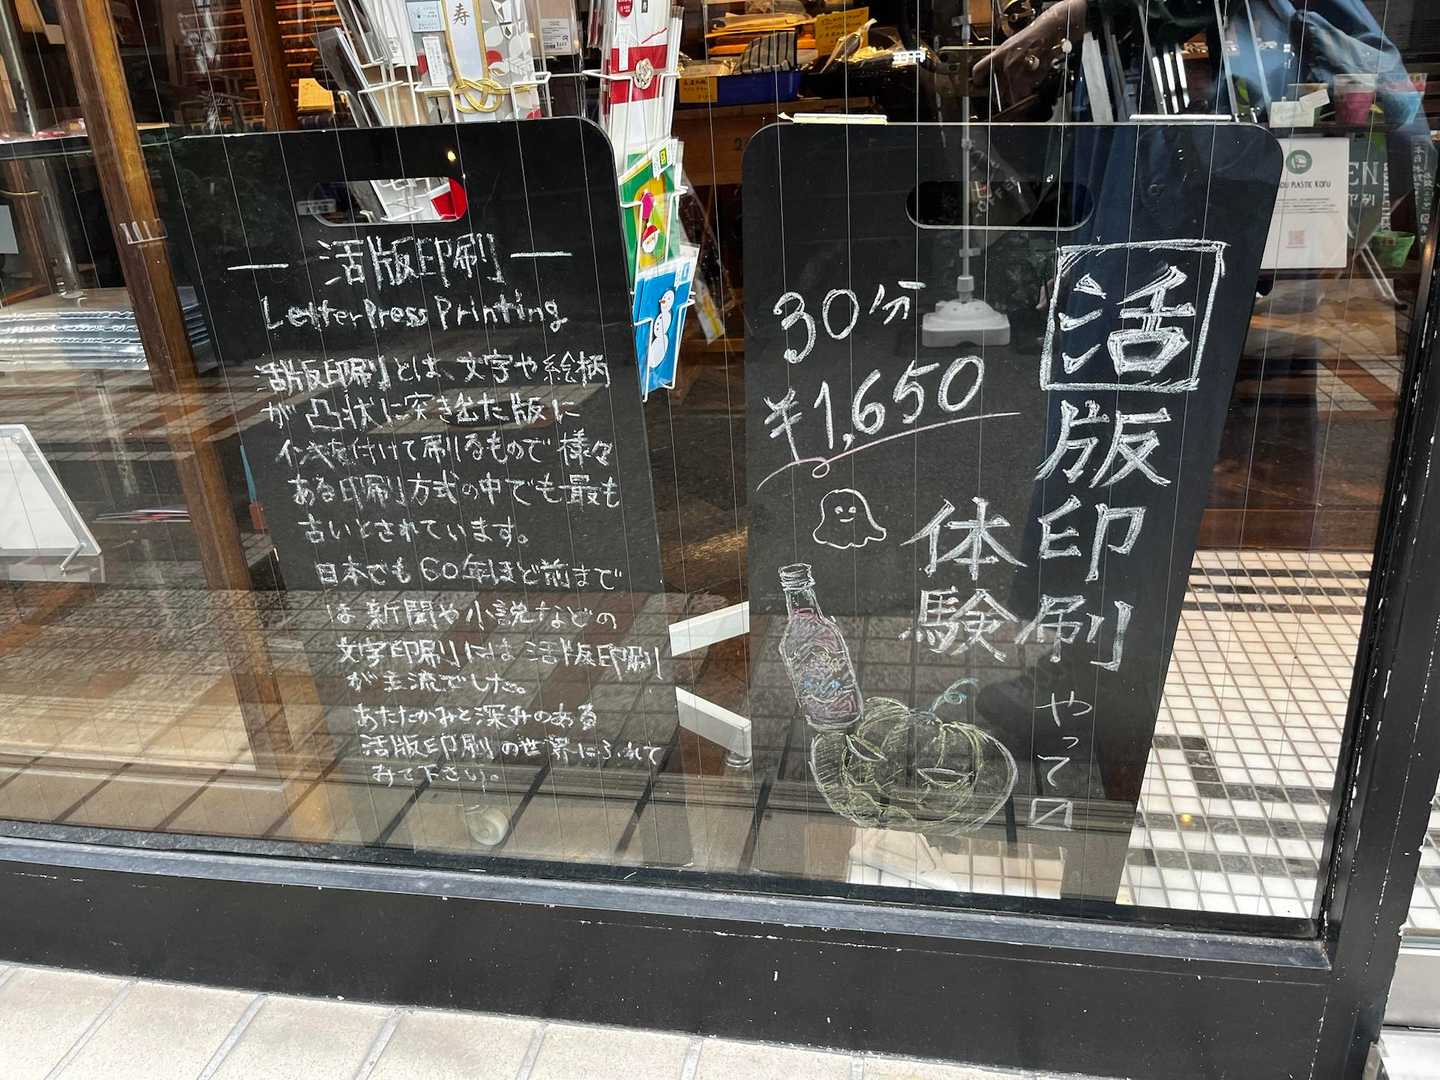 活版印刷
LetterPress Printing
活版印刷とは、文字や絵柄
が凸状に突き出た版に
インキを付けて刷るもので様々
ある印刷方式の中でも最も
古いとされています。
日本でも60年ほど前まで
は新聞や小説などの
文字印刷には活版印刷
が主流でした。
あたたかみと深みのある
活版印刷の世界にふれて
みて下さい。
活版印刷
体験
やって〼
30分
¥1,650
寿